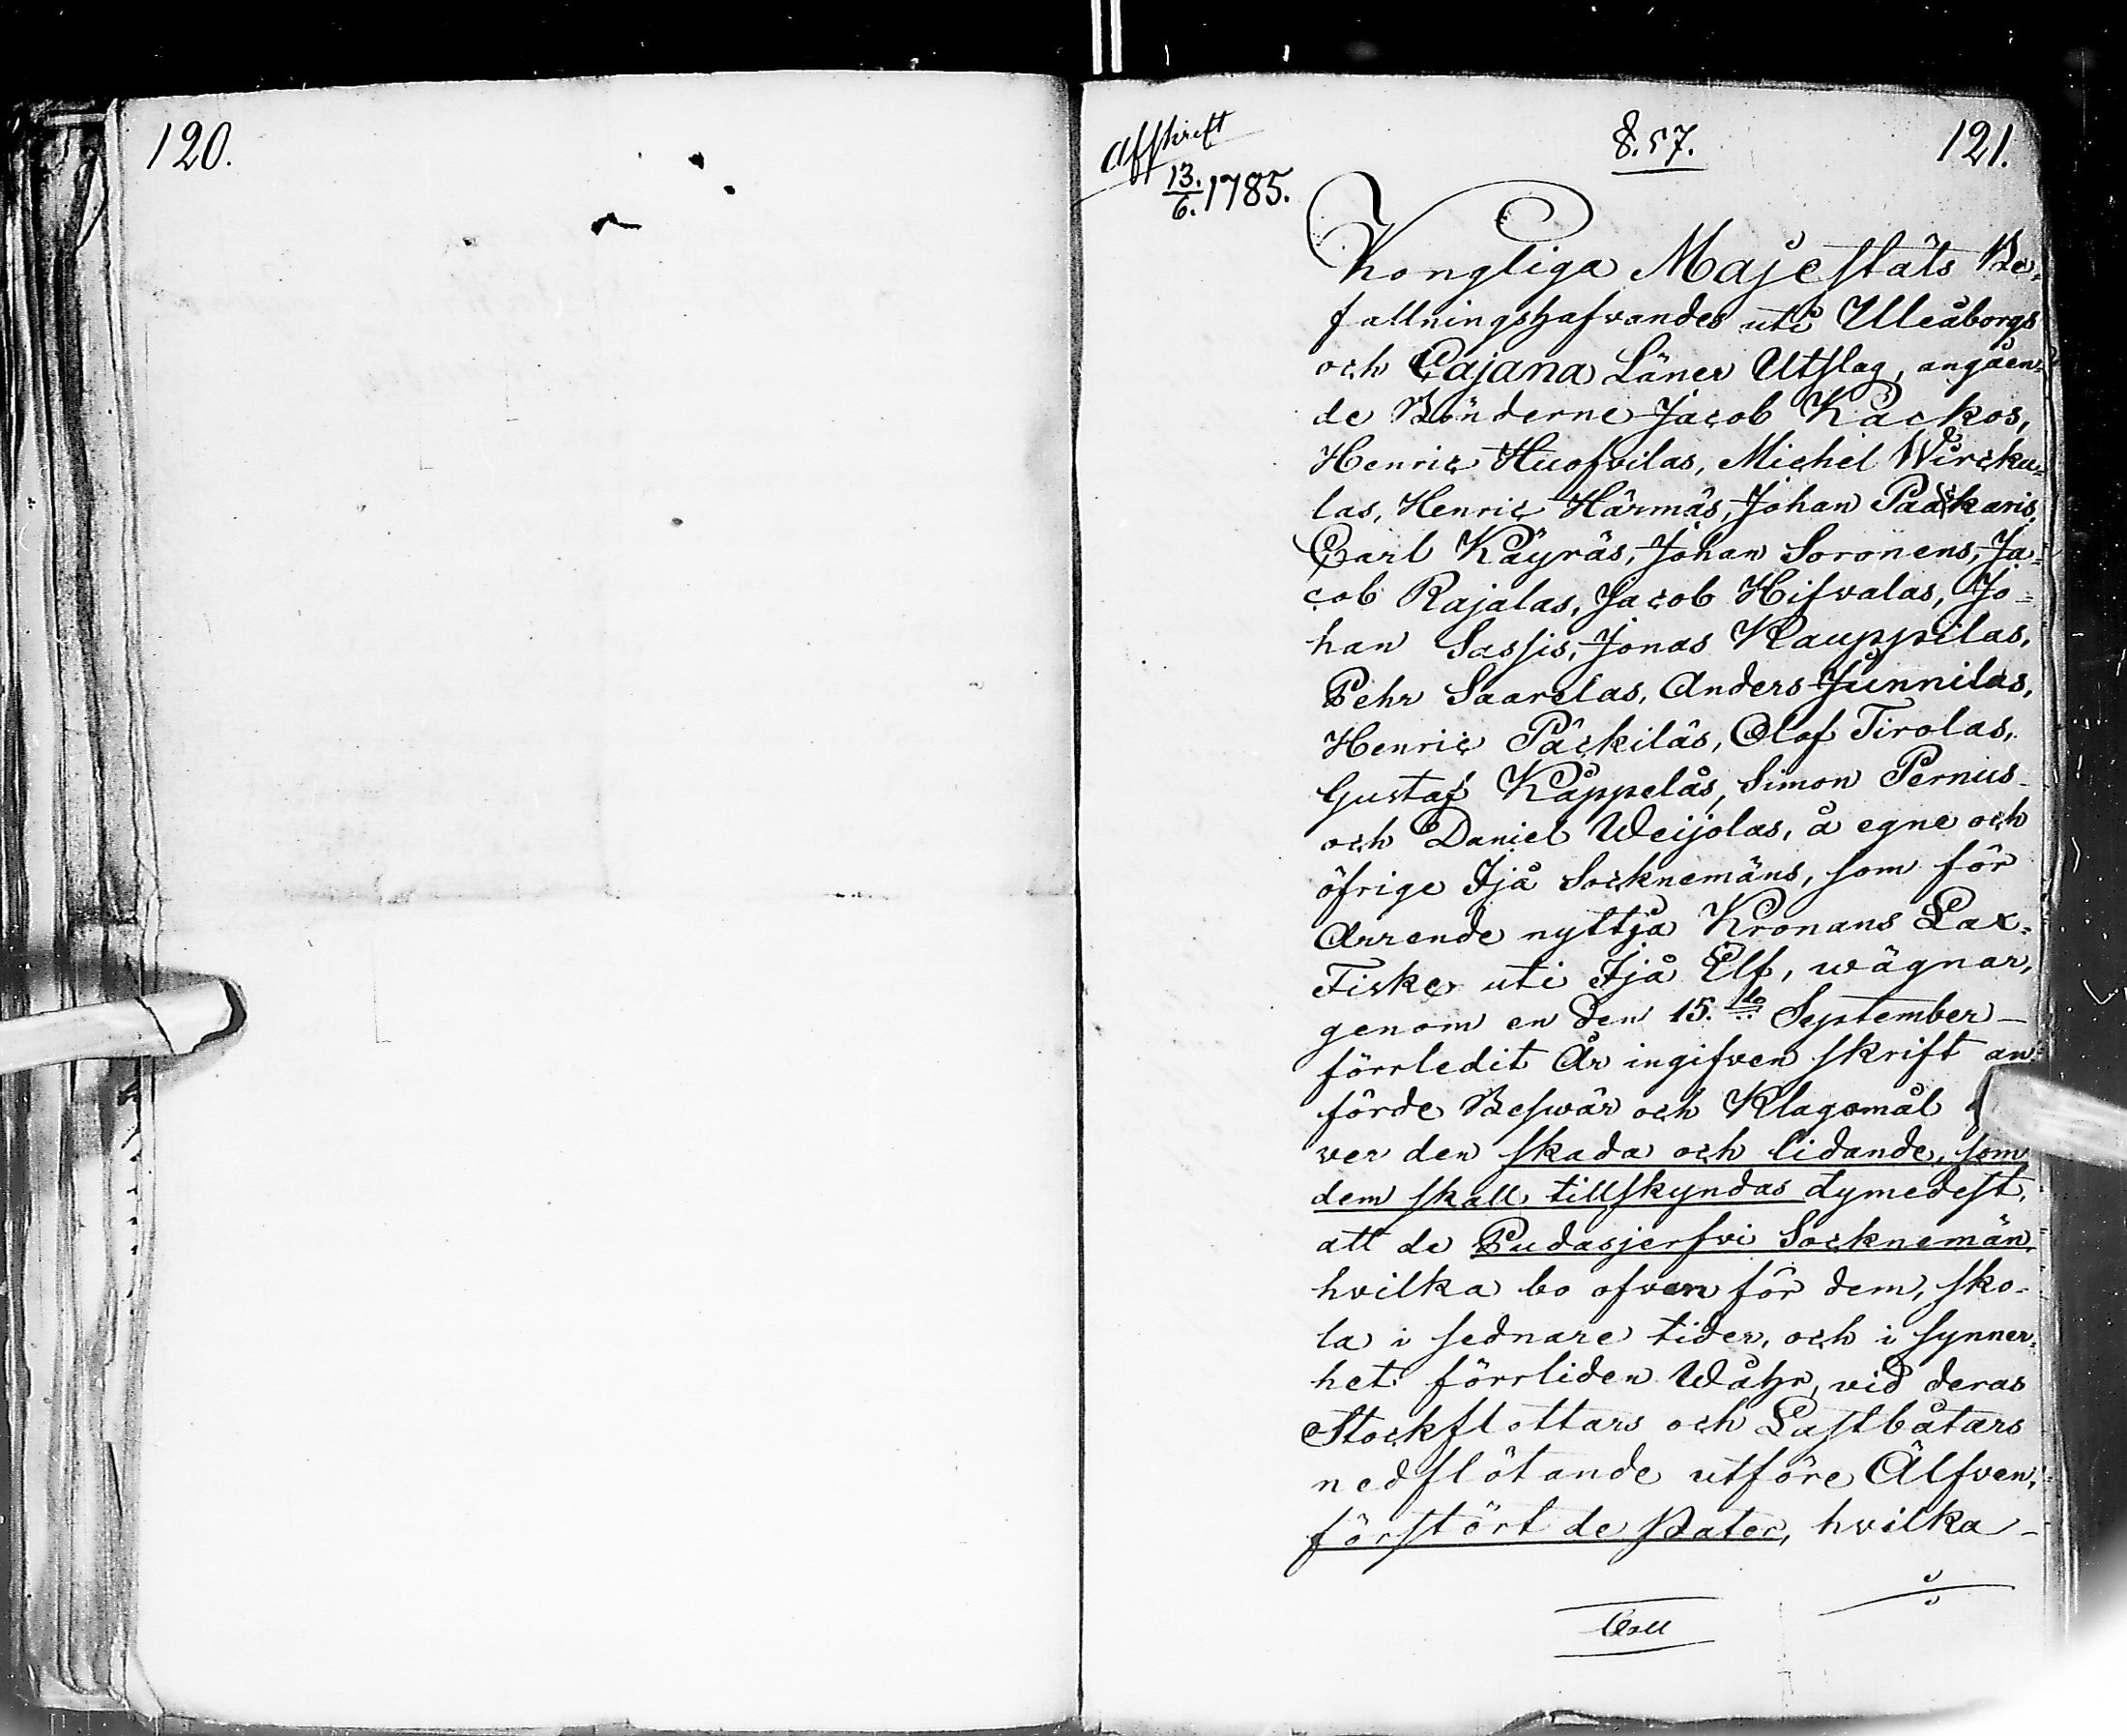 120.
Afskrift
13./6. 1785.
8.57.
121.
Kongliga Majestäts Be=
fallningshafvandes uti Uleåborgs
och Cajana Läners Utslag, angåen=
de Bönderne Jacob Kackos,
Henric Huofvilas, Michel Wircku=
las, Henric Härmäs, Johan Paackaris,
Carl Käyräs, Johan Soronens, Ja=
cob Rajalas, Jacob Hifvalas, Jo=
han Sassis, Jonas Kauppilas,
Pehr Saarelas, Anders Junnilas,
Henric Päckiläs, Olof Tirolas,
Gustaf Käppeläs, Simon Pernus
och Daniel Weijolas, å egne och
öfrige Ijå Socknemäns, som för
Arrende nyttja Kronans Lax=
Fiske uti Ijå Elf, wägnar,
genom en den 15.de September
förrledit År ingifven skrift an=
förde Beswär och Klagomål
ver den skada och lidande, som
dem skall tillskyndas dymedest,
att de Pudasjerfvi Socknemän,
hvilka bo ofvan för dem, sko=
la i sednare tider, och i synner=
het förrliden Wåhr, vid deras
Stockflottars och Lastbåtars
nedflötande utföre Älfven,
förstört de Pater, hvilka
Coll